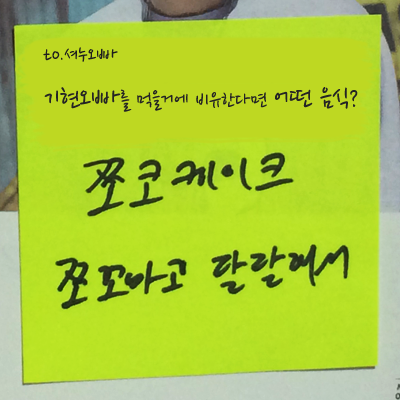 to. 셔누오빠
기현오빠를 먹을거에 비유한다면 어떤 음식?
쪼코케이크
쪼꼬마고 달달해서